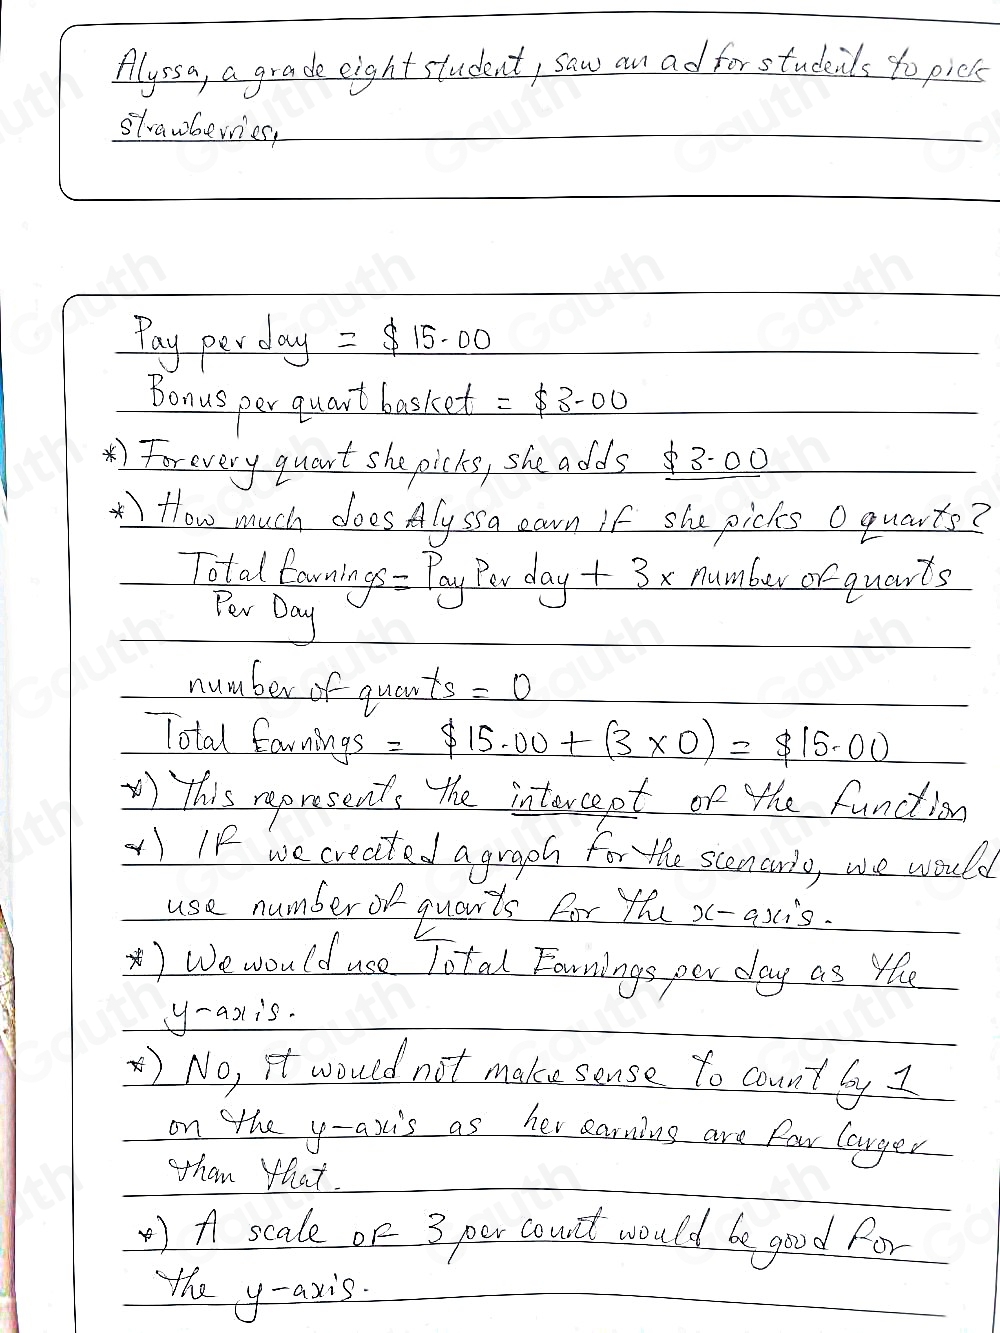 Alyssa, a grade eight student, saw an ad for students to pick
strawberries,
Pay per day = $15.00
Bonus per quart basket = $3.00
*) For every quart she picks, she adds $3.00
*) How much does Alyssa earn if she picks 0 quarts?
Total Earnings = Pay Per day + 3 x number of quarts
Per Day
number of quarts = 0
Total Earnings = $15.00 + (3 x 0) = $15.00
*) This represents the intercept of the function
*) If we created a graph for the scenario, we would
use number of quarts for the x-axis.
*) We would use Total Earnings per day as the
y-axis.
*) No, it would not make sense to count by 1
on the y-axis as her earning are far larger
than that.
*) A scale of 3 per count would be good for
the y-axis.